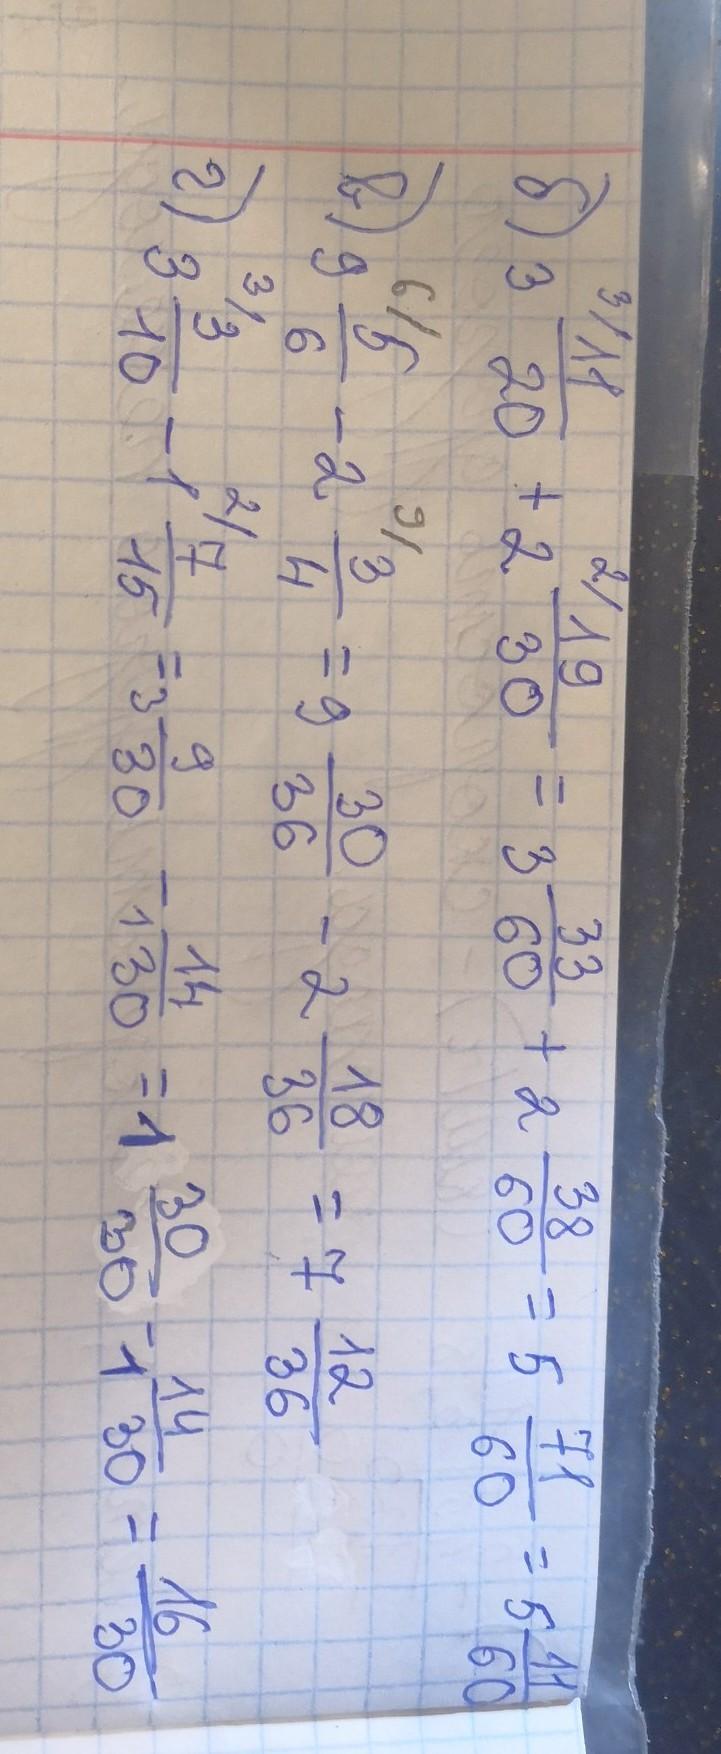 б) 3 3/ 11/20 + 2 2/ 19/30 = 3 33/60 + 2 38/60 = 5 71/60 = 5 11/60
в) 9 6/ 5/6 - 2 9/ 3/4 = 9 30/36 - 2 18/36 = 7 12/36
г) 3 3/ 3/10 - 1 2/ 7/15 = 3 9/30 - 1 14/30 = 1 30/30 - 1 14/30 = 16/30